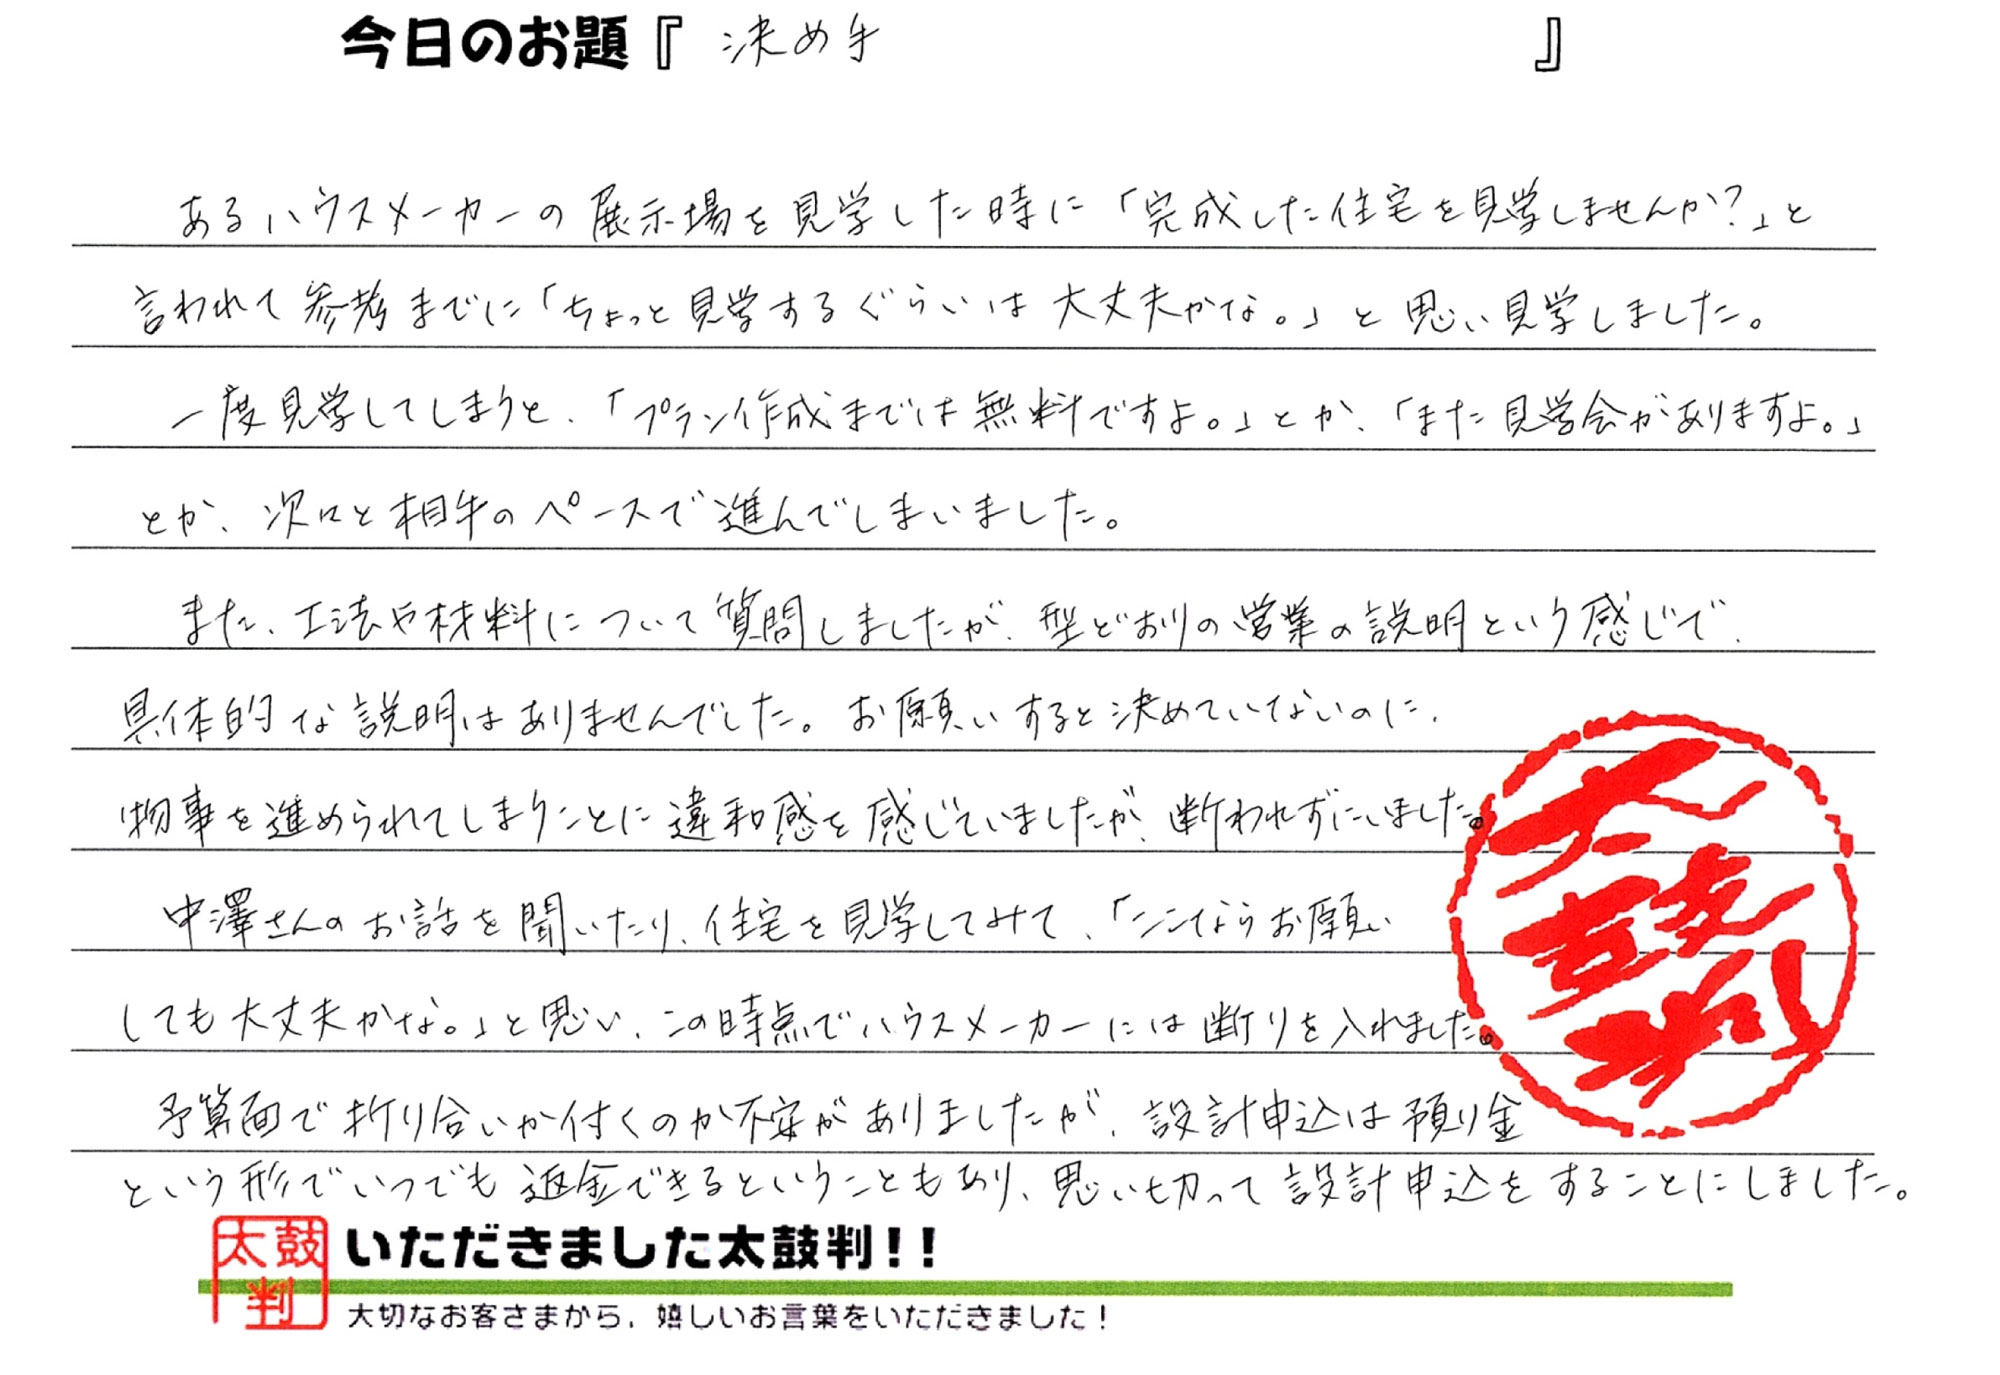 今日のお題『 決め手 』
あるハウスメーカーの展示場を見学した時に「完成した住宅を見学しませんか？」と
言われて参考までに「ちょっと見学するぐらいは大丈夫かな。」と思い見学しました。
一度見学してしまうと、「プラン作成までは無料ですよ。」とか、「また見学会がありますよ。」
とか、次々と相手のペースで進んでしまいました。
また、工法や材料について質問しましたが、型どおりの営業の説明という感じで、
具体的な説明はありませんでした。お願いすると決めていないのに、
物事を進められてしまうことに違和感を感じていましたが、断われずにいました。
中澤さんのお話を聞いたり、住宅を見学してみて、「ここならお願い
しても大丈夫かな。」と思い、この時点でハウスメーカーには断りを入れました。
予算面で折り合いが付くのか不安がありましたが、設計申込は預り金
という形でいつでも返金できるということもあり、思い切って設計申込をすることにしました。
太鼓判
太鼓判
いただきました太鼓判！！
大切なお客さまから、嬉しいお言葉をいただきました！